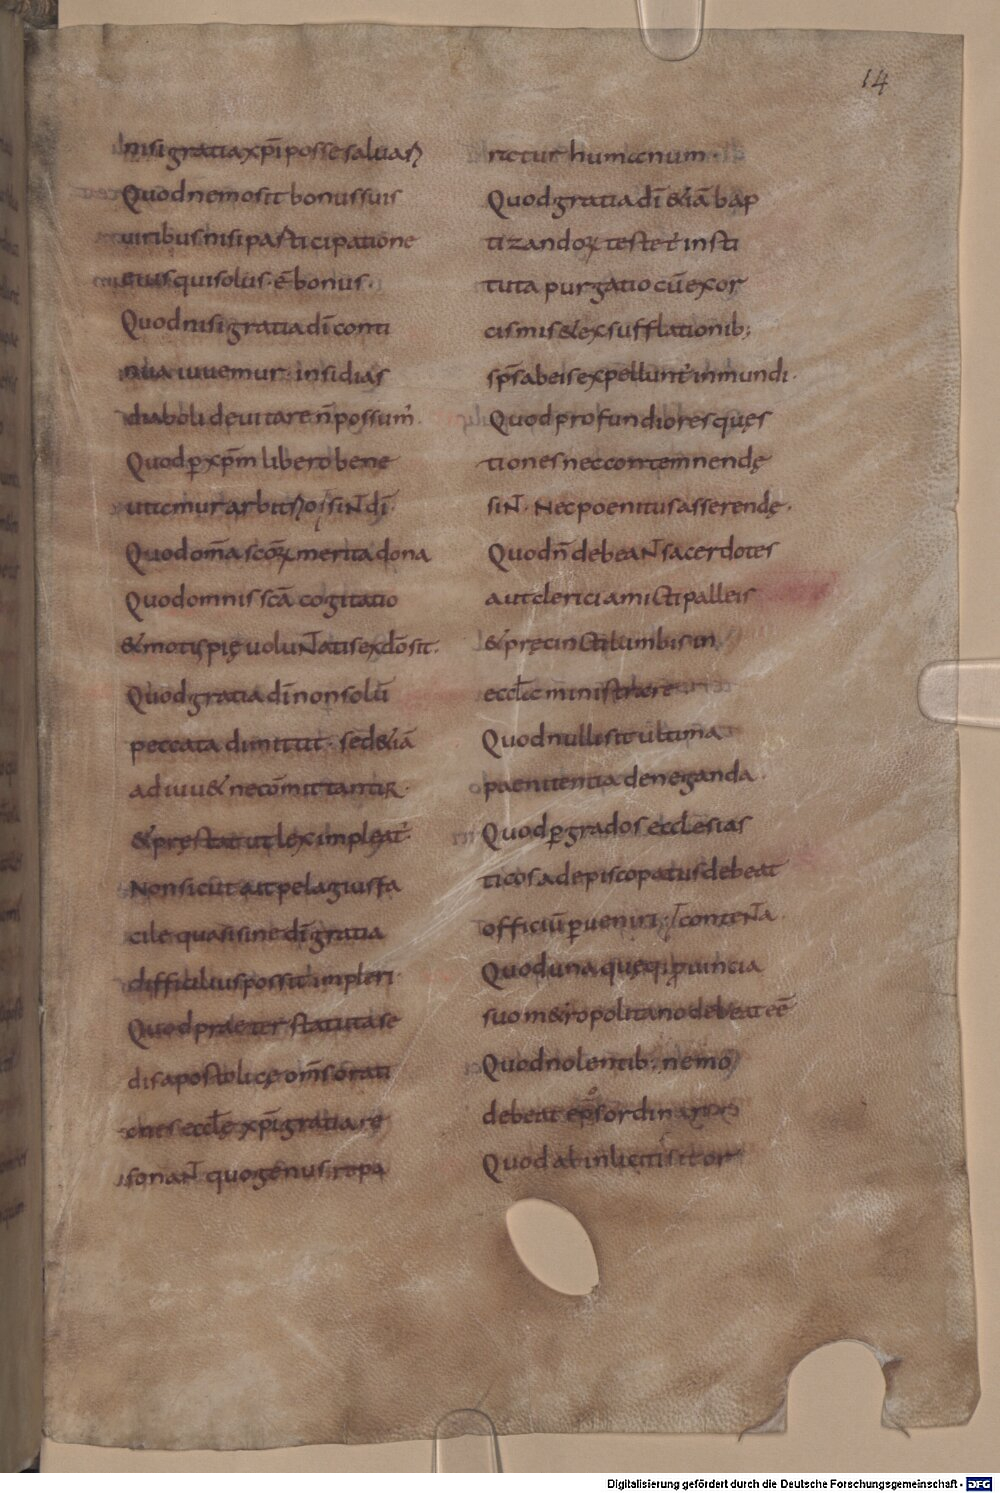 14
nisi gratia xp̄i posse saluari
Quod nemo sit bonus suis
uiribus nisi participatione
eius qui solus · ē bonus ·
Quod nisi gratia dī conti
nua iuuemur · insidias
diaboli deuitare n̄ possum᾿ ·
Quod ꝑ xp̄m libero bene
utemur arbitrio · siNT dī ·
Quod om̄a scōꝝ merita dona
Quod omnis scā cogitatio
& motus pię uoluNTatis ex dō sit ·
Quod gratia dī non solū
peccata dimittit · sed &iā
adiuu& ne cōmittantur ·
& pręstat ut lex impleat᾿ ·
Non sicut ait pelagius fa
cile quasi sine dī gratia
difficilius possit impleri ·
Quod praeter statuta se
dis apostolicę om̄s orati
ones eccłę xp̄i gratia re
sonaNT quo genus repa
retur humanum ·
Quod gratia dī &iā bap
tizandoꝝ testet᾿ insti
tuta purgatio cū exor
cismis & exsufflationib;
sp̄s ab eis expellunt᾿ inmundi ·
Quod profundiores quęs
tiones nec contemnendę
siNT · Nec poenitus asserendę ·
Quod n̄ debeaNT sacerdotes
aut clerici amicti palleis
& pręcincti lumbis in
eccła ministrare
Quod nulli sit ultima
paenitentia deneganda ·
Quod ꝑ grados ecclesias
ticos ad episcopatus debeat
officiū ꝑueniri ·
Quod una quęq; ꝓuincia
suo m&ropolitano debeat eē
Quod nolentib; nemo
debeat ep̄s ordinari
Quod ab inlicitis